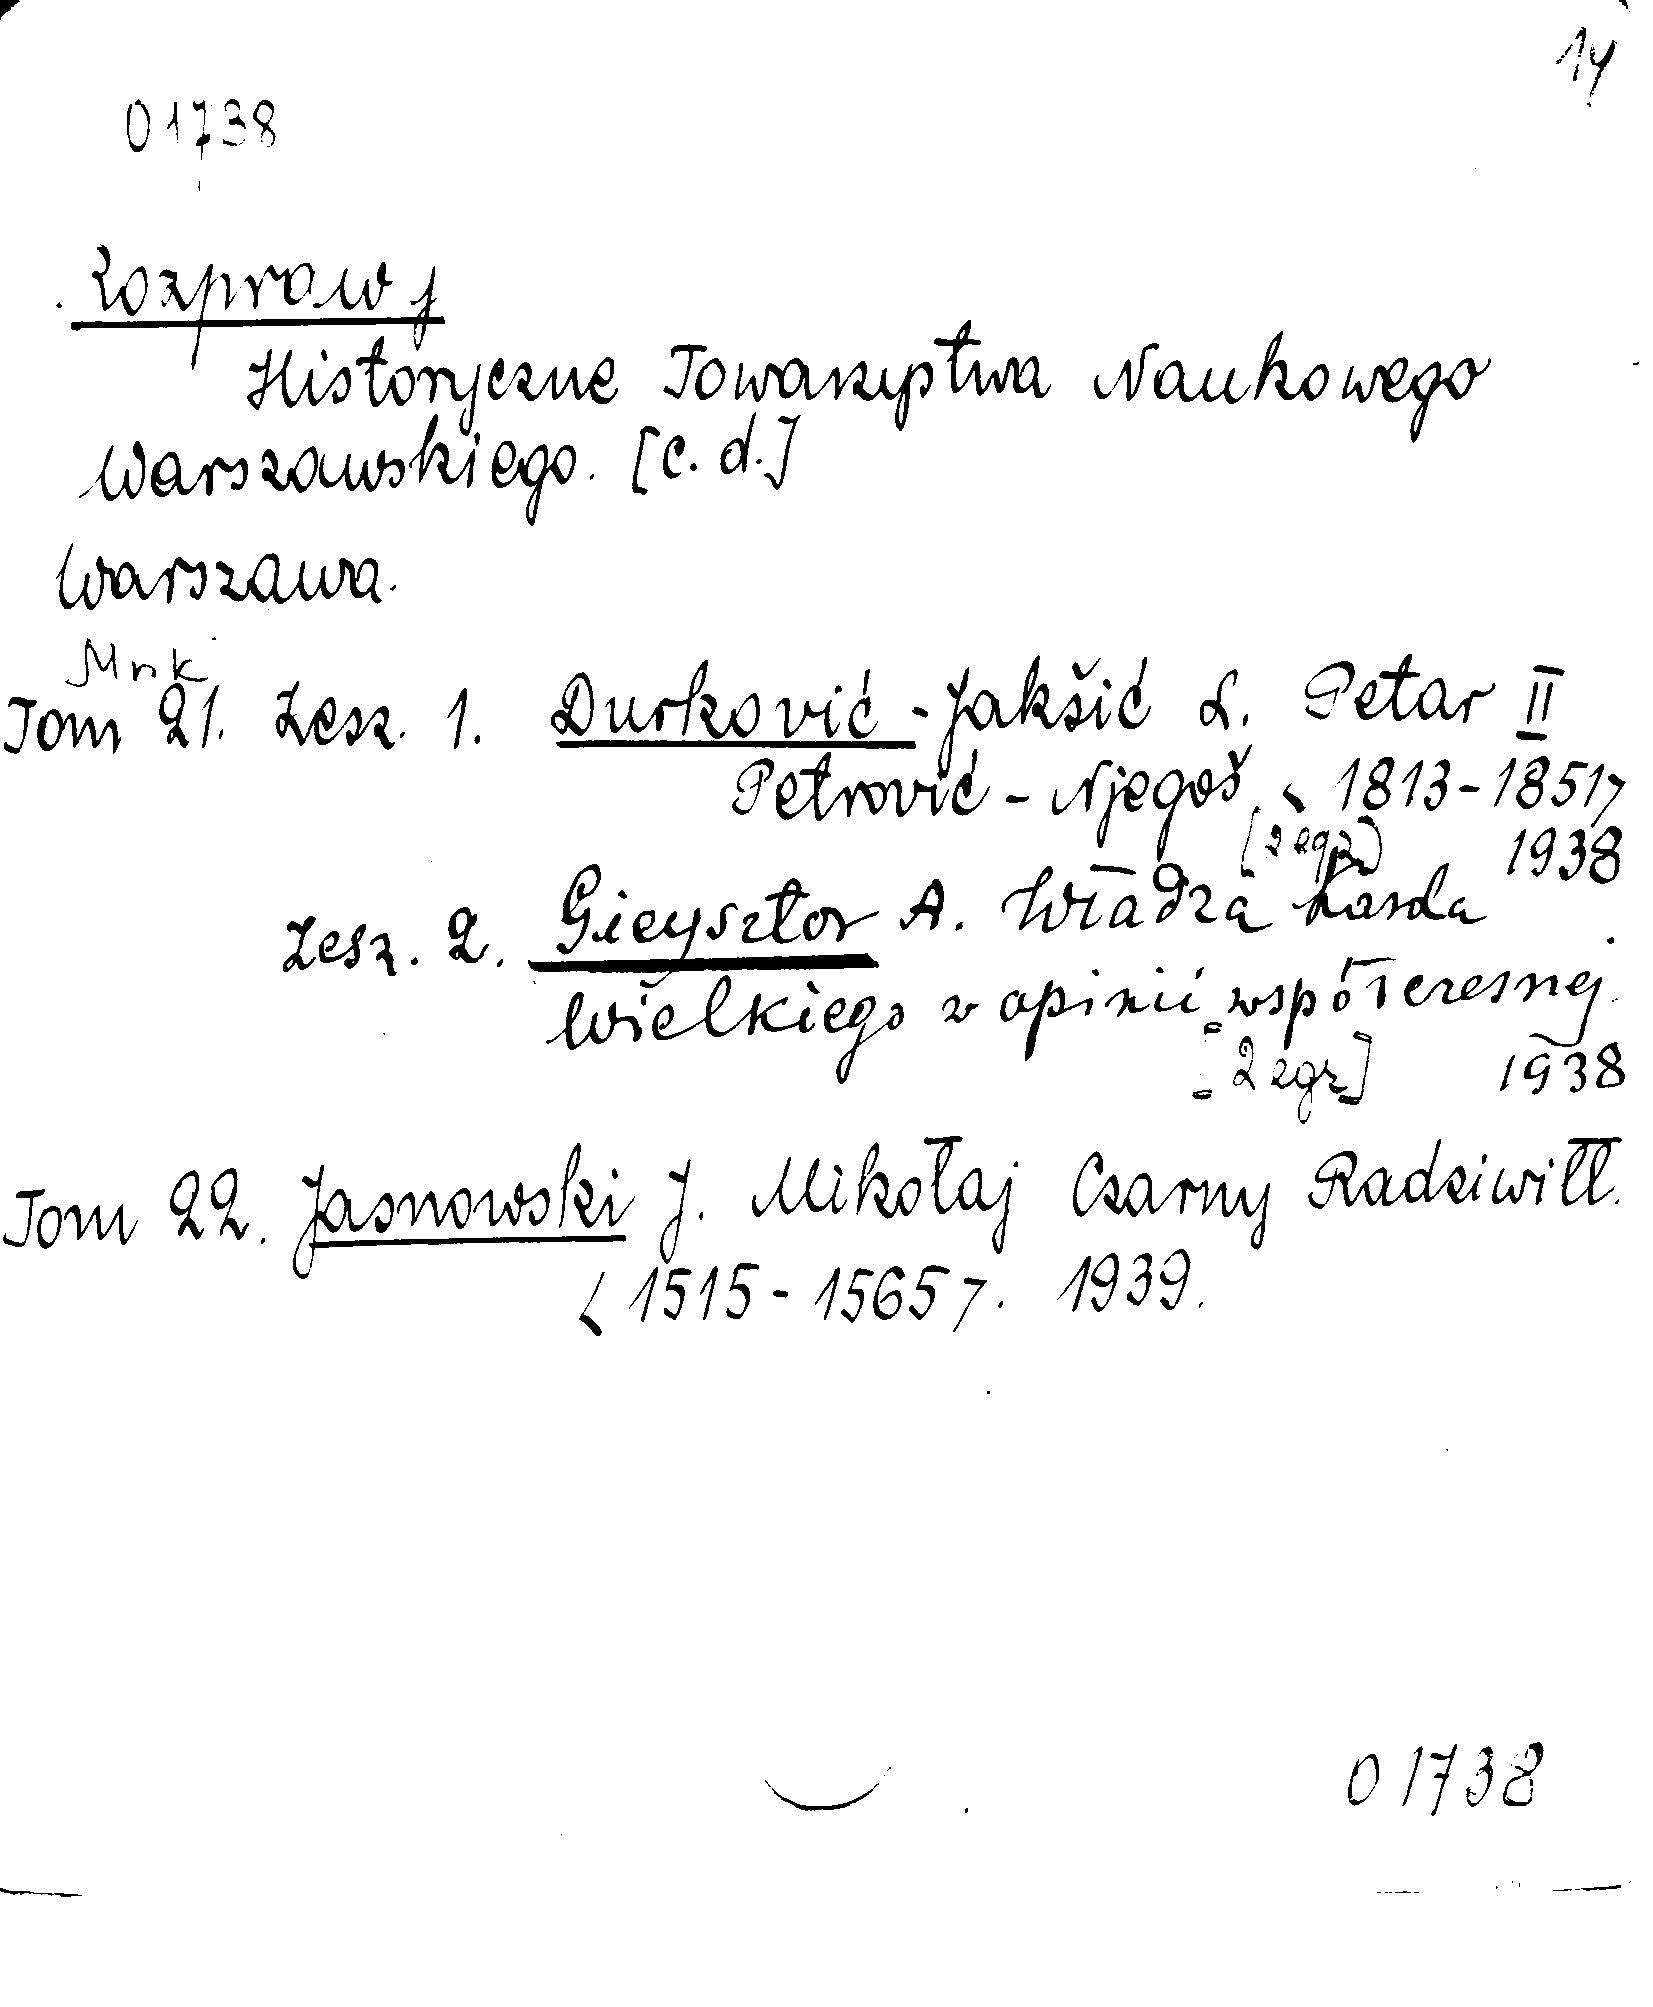 14
01738
Rozprawy
Historyczne Towarzystwa Naukowego
Warszawskiego. [c. d.]
Warszawa.
Mnk
Tom 21. Zesz. 1. Durković-Jakšić L. Petar II
Petrović-Njegoš. <1813-1851>
[2 egz] 1938
Zesz. 2. Gieysztor A. Władza Karola
Wielkiego w opinii współczesnej.
[2 egz] 1938
Tom 22. Jasnowski J. Mikołaj Czarny Radziwiłł.
<1515-1565>. 1939.
01738